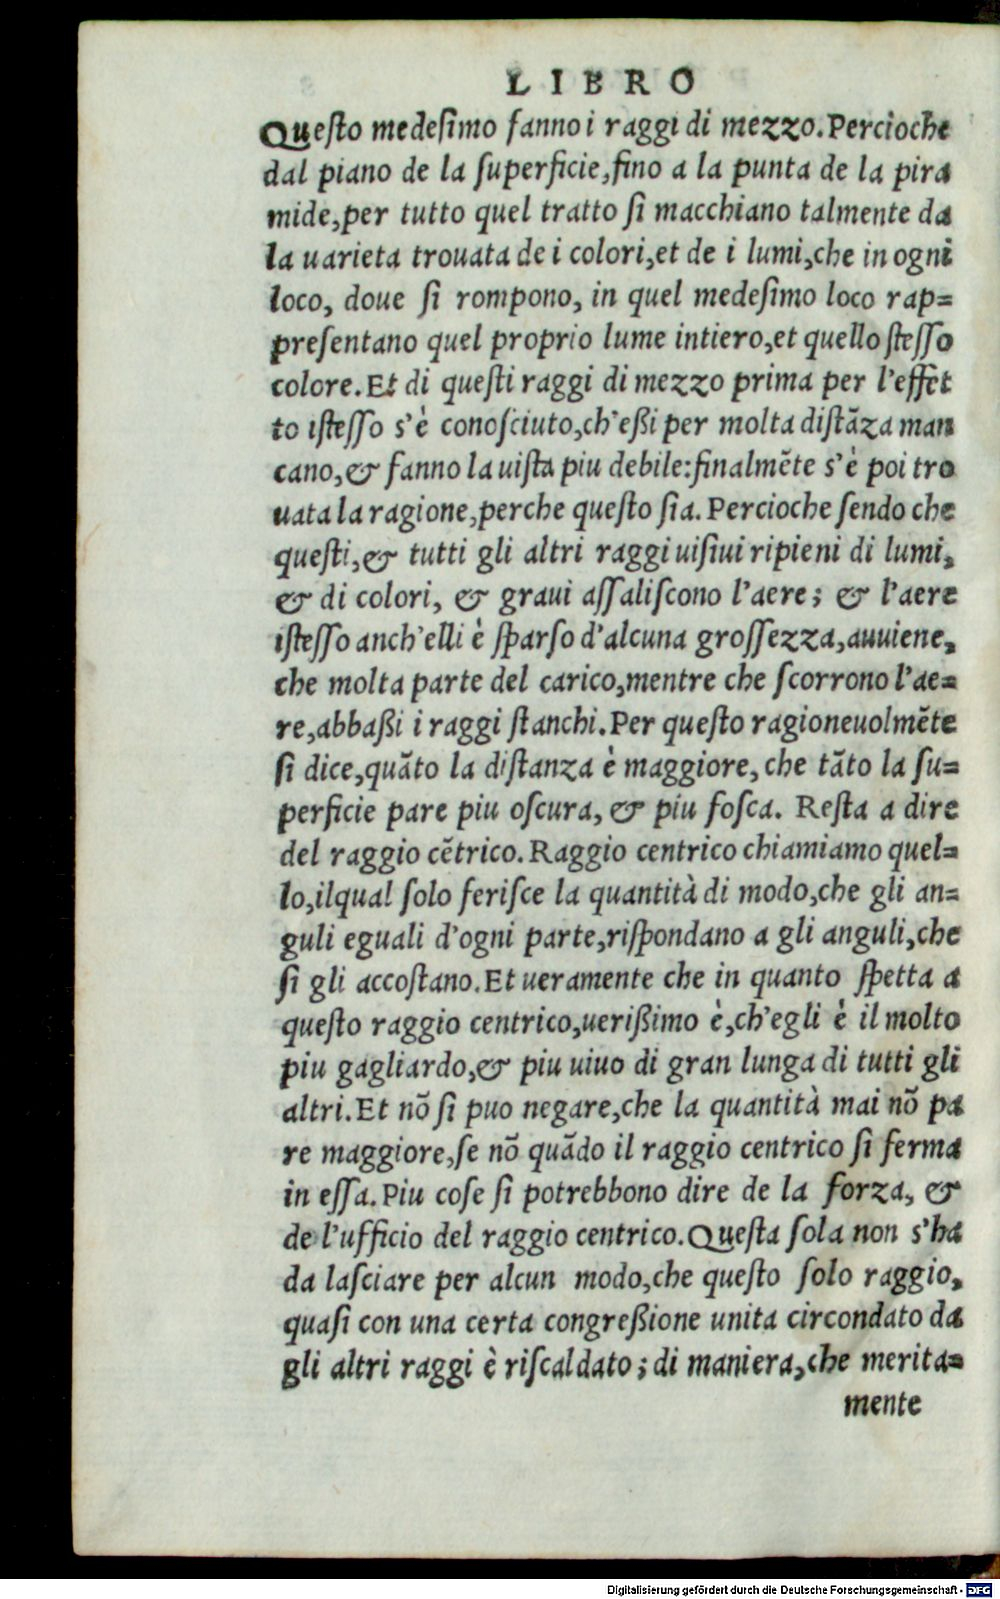 LIBRO
Queſto medeſimo fanno i raggi di mezzo. Percioche
dal piano de la ſuperficie, fino a la punta de la pira
mide, per tutto quel tratto ſi macchiano talmente da
la uarieta trouata de i colori, et de i lumi, che in ogni
loco, doue ſi rompono, in quel medeſimo loco rap=
preſentano quel proprio lume intiero, et quello ſteſſo
colore. Et di queſti raggi di mezzo prima per l'effet
to iſteſſo s'è conoſciuto, ch'eßi per molta diſtãza man
cano, & fanno la uiſta piu debile: finalmẽte s'è poi tro
uata la ragione, perche queſto ſia. Percioche ſendo che
queſti, & tutti gli altri raggi uiſiui ripieni di lumi,
& di colori, & graui aſſaliſcono l'aere; & l'aere
iſteſſo anch'elli è ſparſo d'alcuna groſſezza, auuiene,
che molta parte del carico, mentre che ſcorrono l'ae=
re, abbaßi i raggi ſtanchi. Per queſto ragioneuolmẽte
ſi dice, quãto la diſtanza è maggiore, che tãto la ſu=
perficie pare piu oſcura, & piu foſca. Reſta a dire
del raggio cẽtrico. Raggio centrico chiamiamo quel=
lo, ilqual ſolo feriſce la quantità di modo, che gli an=
guli eguali d'ogni parte, riſpondano a gli anguli, che
ſi gli accoſtano. Et ueramente che in quanto ſpetta a
queſto raggio centrico, uerißimo è, ch'egli è il molto
piu gagliardo, & piu uiuo di gran lunga di tutti gli
altri. Et nõ ſi puo negare, che la quantità mai nõ pa
re maggiore, ſe nõ quãdo il raggio centrico ſi ferma
in eſſa. Piu coſe ſi potrebbono dire de la forza, &
de l'ufficio del raggio centrico. Queſta ſola non s'ha
da laſciare per alcun modo, che queſto ſolo raggio,
quaſi con una certa congreßione unita circondato da
gli altri raggi è riſcaldato; di maniera, che merita=
mente
Digitalisierung gefördert durch die Deutsche Forschungsgemeinschaft - DFG